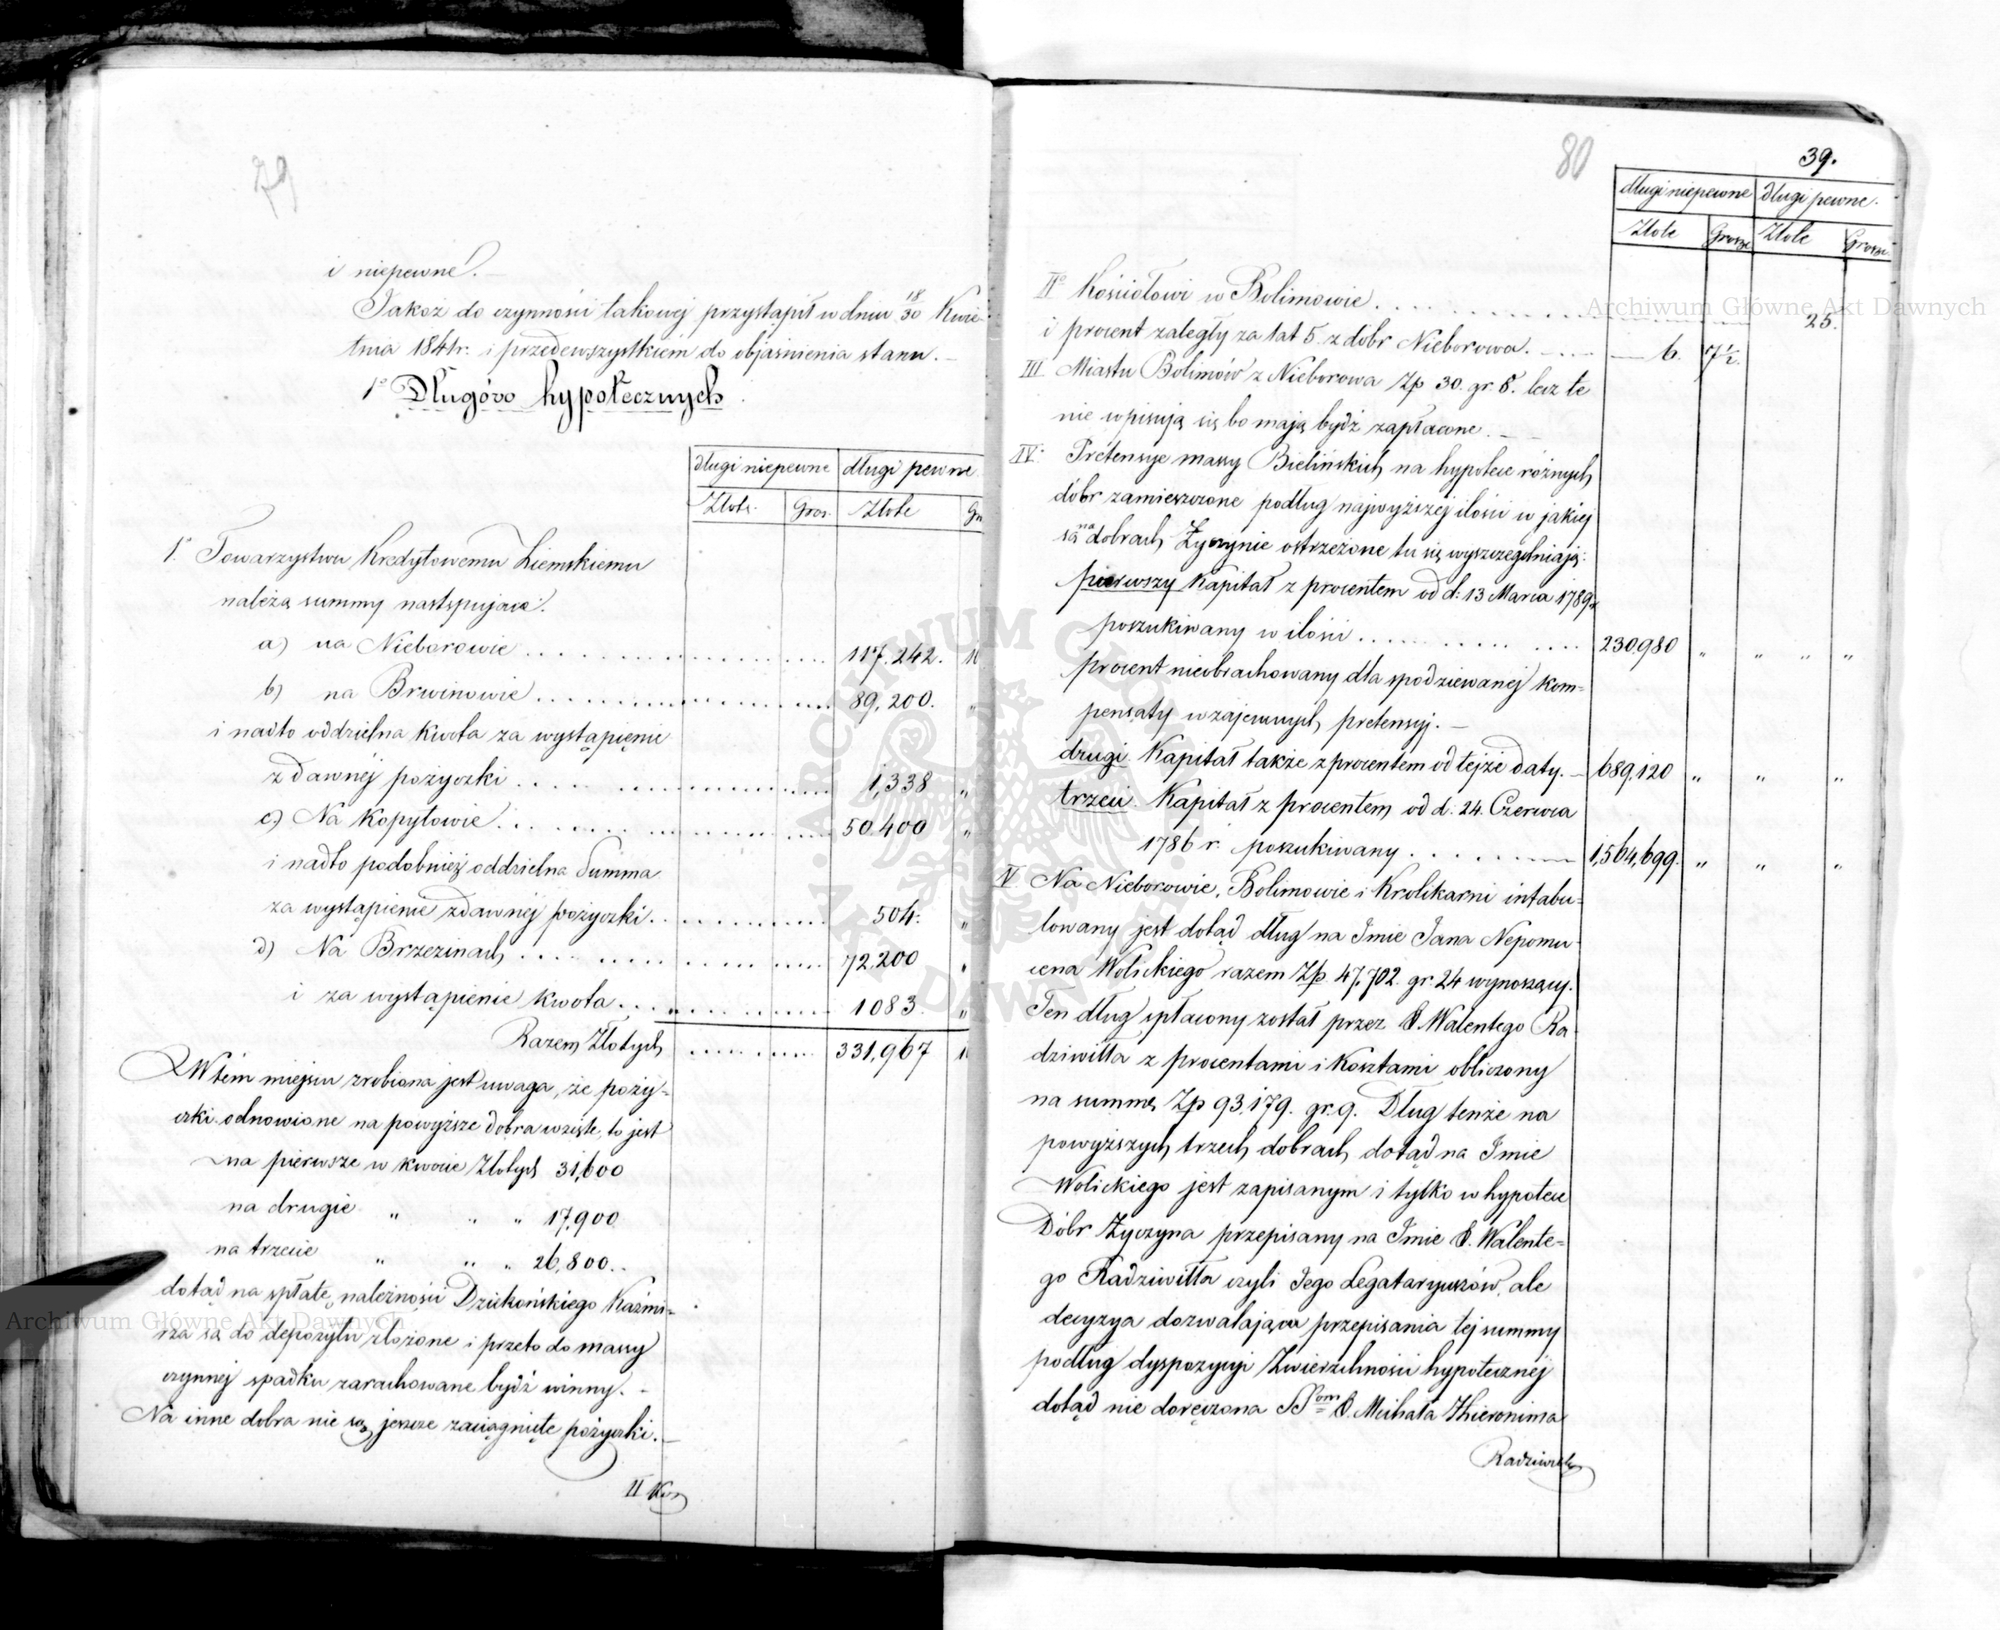 79
i niepewne. —
Jakoż do czynności takowej przystąpił w dniu 18/30 Kwie-
tnia 1841 r. i przedewszystkiem do objaśnienia stanu. —
1° Długów hypotecznych.
długi niepewne długi pewne
Złote. Gros. Złote Gr
1° Towarzystwu Kredytowemu Ziemskiemu
należą summy następujące:
a) na Nieborowie . . . . . . 117.242. 1
b) na Brwinowie . . . . . . 89,200. "
i nadto oddzielna kwota za wystąpienie
z dawnéj pożyczki . . . . . . 1,338 "
c) Na Kopytowie . . . . . . 50.400 "
i nadto podobnież oddzielna Summa
za wystąpienie z dawnéj pożyczki . . . . . . 504. "
d) Na Brzezinach . . . . . . 72,200 "
i za wystąpienie kwota . . . . . . 1083. "
Razem Złotych . . . . . . 331,967 1
W tém miejscu zrobiona jest uwaga, że poży-
czki odnowione na powyższe dobra wzięte, to jest
na pierwsze w kwocie Złotych 31,600
na drugie " " " 17,900
na trzecie " " " 26,800. .
dotąd na spłatę należności Dziekońskiego Kaźmi-
rza są do depozytu złożone i przeto do massy
czynnéj spadku zarachowane bydź winny. —
Na inne dobra nie są jeszcze zaciągnięte pożyczki. —
II Koś
80
39.
długi niepewne długi pewne.
Złote Grosze Złote Grosze.
II° Kościołowi w Bolimowie . . . . . . 25.
i procent zaległy za lat 5. z dóbr Nieborowa. — 6. 7½.
III. Miastu Bolimów z Nieborowa Zp 30. gr 8. lecz te
nie wpisują się bo mają bydź zapłacone. —
IV. Pretensye massy Bielińskich na hypotece różnych
dóbr zamieszczone podług najwyższéj ilości w jakiéj
są na dobrach Życzynie ostrzeżone tu się wyszczególniają:
pierwszy Kapitał z procentem od d: 13 Marca 1789 r
poszukiwany w ilości . . . . . . 230,980 " " " "
procent nieobrachowany dla spodziewanéj kom-
pensaty wzajemnych pretensyj. —
drugi. Kapitał także z procentem od tejże daty. — 689,120 " " "
trzeci. Kapitał z procentem od d. 24. Czerwca
1786 r. poszukiwany . . . . . . 1,564,699. " " "
V. Na Nieborowie, Bolimowie i Krolikarni intabu-
lowany jest dotąd dług na Imie Jana Nepomu-
cena Wolickiego razem Zp. 47,702. gr. 24 wynoszący.
Ten dług spłacony został przez X. Walentego Ra-
dziwiłła z procentami i kosztami obliczony
na summę Zp 93,179. gr. 9. Dług tenże na
powyższych trzech dobrach dotąd na Imie
Wolickiego jest zapisanym i tylko w hypotece
Dóbr Życzyna przepisany na Imie X. Walente-
go Radziwiłła czyli Jego Legataryuszów, ale
decyzya dozwalająca przepisania téj summy
podług dyspozycyi Zwierzchności hypotecznéj
dotąd nie doręczona SSom X. Michała Hieronima
Radziwiłła
Archiwum Główne Akt Dawnych
Archiwum Główne Akt Dawnych
ARCHIWUM GŁÓWNE AKT DAWNYCH